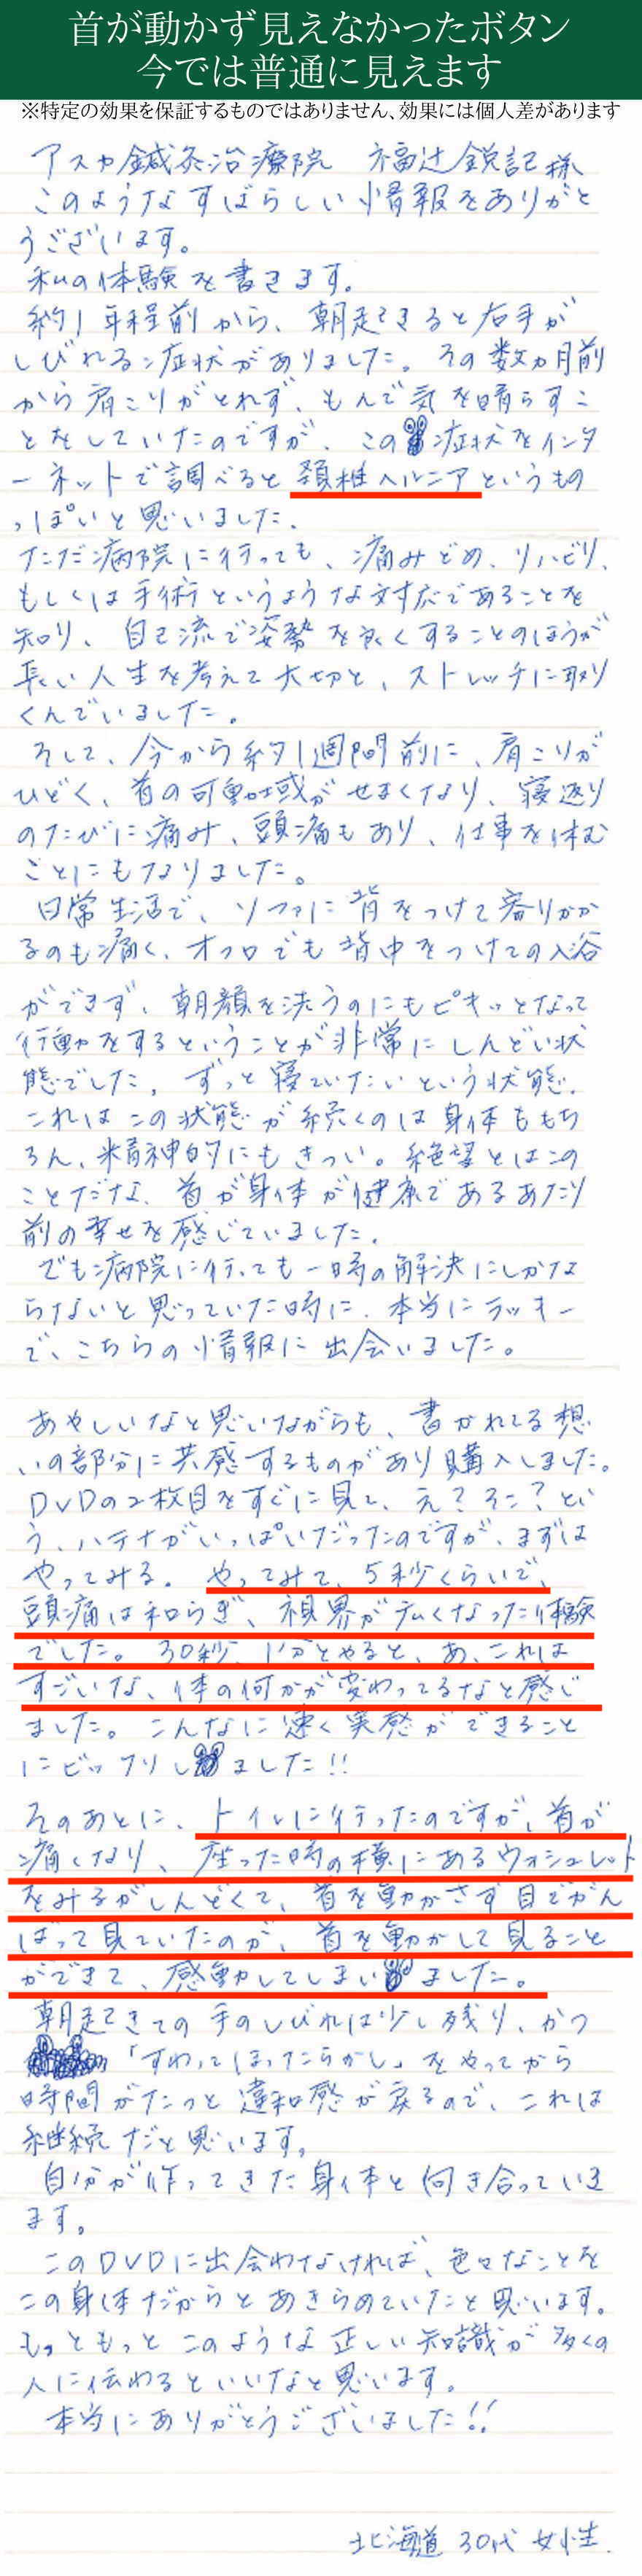 首が動かず見えなかったボタン
今では普通に見えます
※特定の効果を保証するものではありません、効果には個人差があります
アスカ鍼灸治療院 福辻鋭記様
このようなすばらしい情報をありがと
うございます。
私の体験を書きます。
約1年程前から、朝起きると右手が
しびれる症状がありました。その数ヵ月前
から肩こりがとれず、もんで気を晴らすこ
とをしていたのですが、この症状をインタ
ーネットで調べると頚椎ヘルニアというもの
っぽいと思いました。
ただ病院に行っても、痛みどめ、リハビリ、
もしくは手術というような対応であることを
知り、自己流で姿勢を良くすることのほうが
長い人生を考えて大切と、ストレッチに取り
くんでいました。
そして、今から約1週間前に、肩こりが
ひどく、首の可動域がせまくなり、寝返り
のたびに痛み、頭痛もあり、仕事を休む
ことにもなりました。
日常生活で、ソファに背をつけて寄りかか
るのも痛く、オフロでも背中をつけての入浴
ができず、朝顔を洗うのにもピキッとなって
行動をするということが非常にしんどい状
態でした。ずっと寝ていたいという状態。
これはこの状態が続くのは身体ももち
ろん、精神的にもきつい。絶望とはこの
ことだな、首が身体が健康であるあたり
前の幸せを感じていました。
でも病院に行っても一時の解決にしかな
らないと思っていた時に、本当にラッキー
で、こちらの情報に出会いました。
あやしいなと思いながらも、書かれてる想
いの部分に共感するものがあり購入しました。
DVDの2枚目をすぐに見て、え?そこ?とい
う、ハテナがいっぱいだったのですが、まずは
やってみる。やってみて、5秒くらいで、
頭痛は和らぎ、視界が広くなった体験
でした。30秒、1分とやると、あ、これは
すごいな、体の何かが変わってるなと感じ
ました。こんなに速く実感ができること
にビックリしました!!
そのあとに、トイレに行ったのですが、首が
痛くなり、座った時の横にあるウォシュレット
をみるがしんどくて、首を動かさず目でがん
ばって見ていたのが、首を動かして見ること
ができて、感動してしまいました。
朝起きての手のしびれは少し残り、かつ
「すわってほったらかし」をやってから
時間がたつと違和感が戻るので、これは
継続だと思います。
自分が作ってきた身体と向き合っていき
ます。
このDVDに出会わなければ、色々なことを
この身体だからとあきらめていたと思います。
もっともっとこのような正しい知識が多くの
人に伝わるといいなと思います。
本当にありがとうございました!!
北海道 30代 女性.